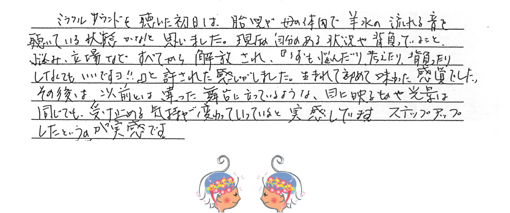 ミラクルサウンドを聴いた初日は、胎児が母の体内で羊水の流れる音を
聴いている状態かなと思いました。現在自分のある状況や背負っていること、
悩み、立場などすべてから解放され、「何も悩んだり考えたり、背負ったり
しなくてもいいですヨ!!」と許された感じがしました。生まれて初めて味わった感覚でした。
その後は、以前とは違った舞台に立っているような、目に映るものや光景は
同じでも、受け止める気持ちが変わっていっていると実感しています ステップアップ
したというのが実感です